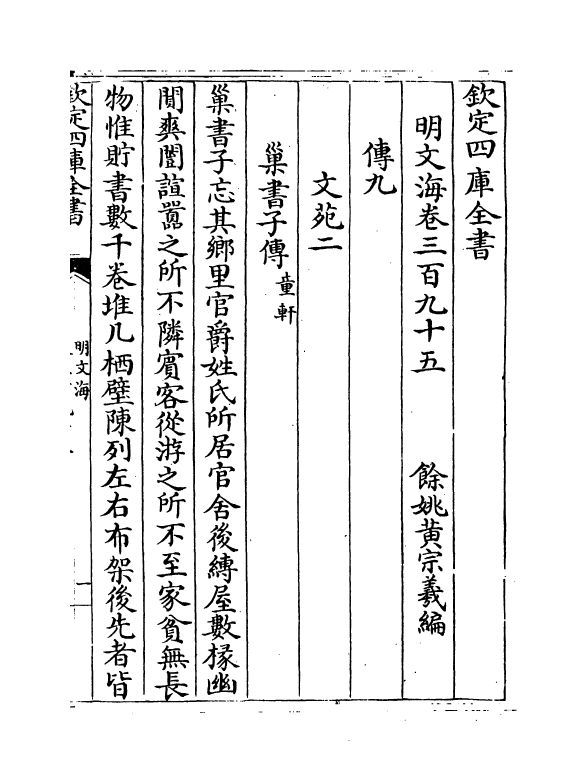 欽定四庫全書
明文海卷三百九十五 餘姚黃宗羲編
傳九
文苑二
巢書子傳 童軒
巢書子忘其鄉里官爵姓氏所居官舍後縳屋數椽幽
閒爽闓諠囂之所不隣賓客從游之所不至家貧無長
物惟貯書數千巻堆几栖壁陳列左右布架後先者皆
欽定四庫全書
明文海
一